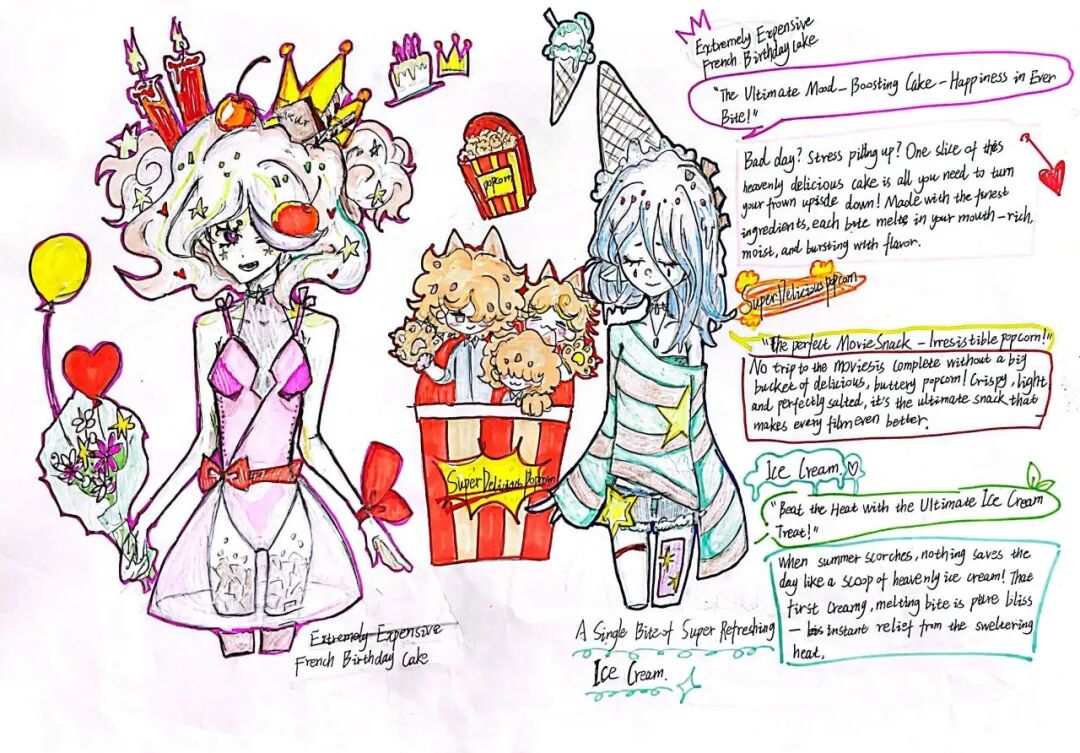 popcorn
Super Delicious Popcorn
Extremely Expensive
French Birthday Cake
A Single Bite of Super Refreshing
Ice Cream.
Extremely Expensive
French Birthday Cake
"The Ultimate Mood-Boosting Cake-Happiness in Ever
Bite!"
Bad day? Stress piling up? One slice of this
heavenly delicious cake is all you need to turn
your frown upisde down! Made with the finest
ingredients, each bite melts in your mouth-rich,
moist, and bursting with flavor.
Super Delicious popcorn
"the perfect Movie Snack - Irresistible popcorn!"
No trip to the moviesis complete without a big
bucket of delicious, buttery popcorn! Crispy, light
and perfectly salted, it's the ultimate snack that
makes every film even better.
Ice Cream
"Beat the Heat with the Ultimate Ice Cream
Treat!"
When summer scorches, nothing saves the
day like a scoop of heavenly ice cream! That
first creamy, melting bite is pure bliss
- instant relief from the sweltering
heat.